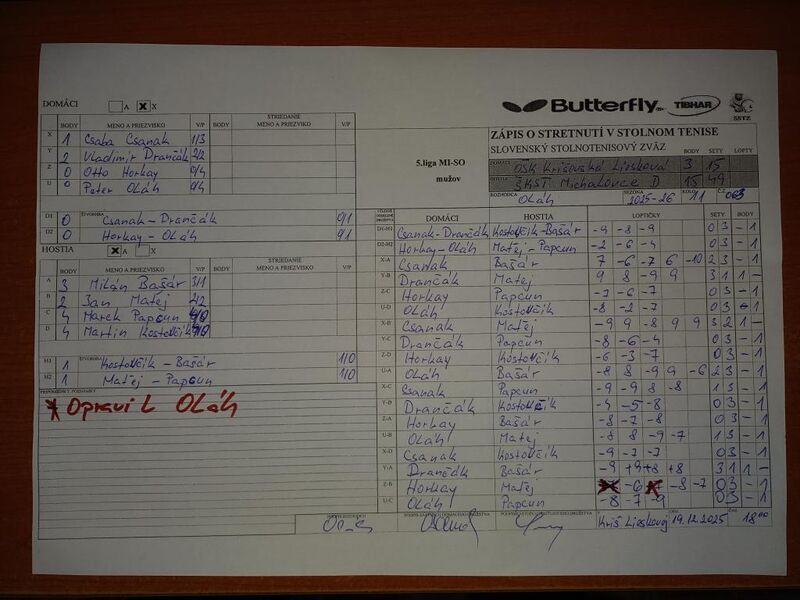 DOMÁCI A X
Butterfly TIBHAR SSTZ
BODY MENO A PRIEZVISKO V/P BODY STRIEDANIE MENO A PRIEZVISKO V/P
X 1 Csaba Csanak 1/3
Y 2 Vladimír Drančák 2/2
Z 0 Otto Horkay 0/4
U 0 Peter Oláh 0/4
5.liga MI-SO
mužov
ZÁPIS O STRETNUTÍ V STOLNOM TENISE
SLOVENSKÝ STOLNOTENISOVÝ ZVÄZ BODY SETY LOPTY
DOMÁCI OŠK Krišovská Liesková 3 15
HOSTIA ŠKST Michalovce D 15 49
ROZHODCA Oláh SEZÓNA 2025-26 KOLO 11 063
D1 0 ŠTVORHRA Csanak - Drančák 0/1
D2 0 Horkay - Oláh 0/1
HOSTIA A X
BODY MENO A PRIEZVISKO V/P BODY STRIEDANIE MENO A PRIEZVISKO V/P
A 3 Milán Bašár 3/1
B 2 Ján Matej 2/2
C 4 Marek Papcun 4/0
D 4 Martin Kostovčik 4/0
H1 1 ŠTVORHRA Kostovčik - Bašár 1/0
H2 1 Matej - Papcun 1/0
PRIPOMIENKY, PODPISY
Opravil Oláh
DOMÁCI HOSTIA LOPTIČKY SETY BODY
D1-H1 Csanak-Drančák Kostovčik-Bašár -9 -8 -9 0 3 - 1
D2-H2 Horkay-Oláh Matej-Papcun -2 -6 -4 0 3 - 1
X-A Csanak Bašár 7 -6 -7 6 -10 2 3 - 1
Y-B Drančák Matej 9 8 -9 9 3 1 1 -
Z-C Horkay Papcun -7 -6 -7 0 3 - 1
U-D Oláh Kostovčik -8 -2 -7 0 3 - 1
X-B Csanak Matej -9 9 -8 9 9 3 2 1 -
Y-C Drančák Papcun -8 -6 -4 0 3 - 1
Z-D Horkay Kostovčik -6 -3 -7 0 3 - 1
U-A Oláh Bašár -8 8 -9 9 -6 2 3 - 1
X-C Csanak Papcun -9 -9 8 -8 1 3 - 1
Y-D Drančák Kostovčik -4 -5 -8 0 3 - 1
Z-A Horkay Bašár -8 -7 -8 0 3 - 1
U-B Oláh Matej -8 8 -9 -7 1 3 - 1
X-D Csanak Kostovčik -9 -7 -7 0 3 - 1
Y-A Drančák Bašár -9 +9 +8 +8 3 1 1 -
Z-B Horkay Matej -6 -8 -7 0 3 - 1
U-C Oláh Papcun -8 -7 -9 0 3 - 1
Kriš Lieskovej 19.12.2025 18 00